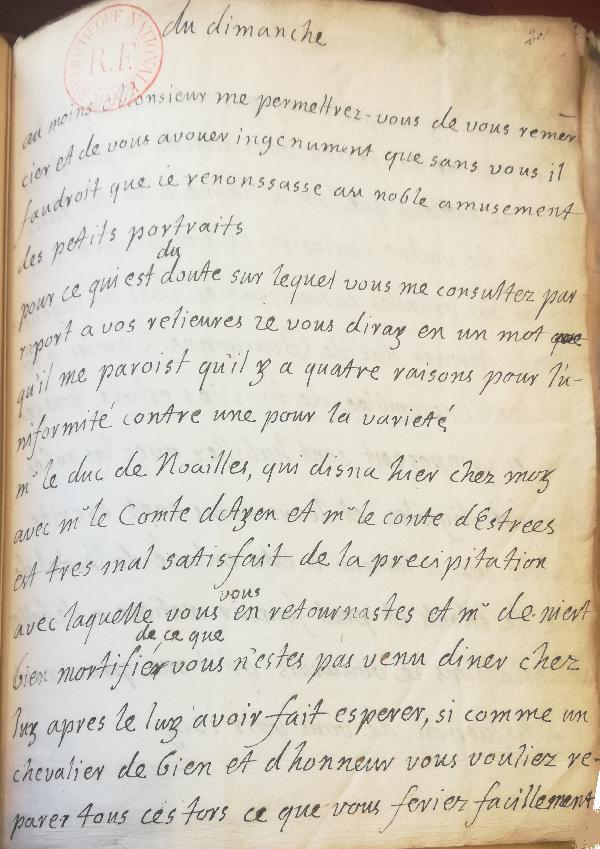 du dimanche
20
BIBLIOTHEQUE NATIONALE
R.F.
au moins Monsieur me permettrez-vous de vous remer
cier et de vous avouer ingenument que sans vous il
faudroit que ie renonssasse au noble amusement
des petits portraits
du
pour ce qui est doute sur lequel vous me consultez par
raport a vos relieures ie vous diray en un mot que
qu'il me paroist qu'il y a quatre raisons pour l'u-
niformité contre une pour la varieté
mr le duc de Noailles, qui disna hier chez moy
avec mr le Comte dAyen et mr le conte dEstrees
est tres mal satisfait de la precipitation
vous
avec laquelle vous en retournastes et mr de niert
de ce que
bien mortifiér vous n'estes pas venu diner chez
luy apres le luy avoir fait esperer, si comme un
chevalier de bien et dhonneur vous vouliez re-
parer tous ces tors ce que vous feriez facillement